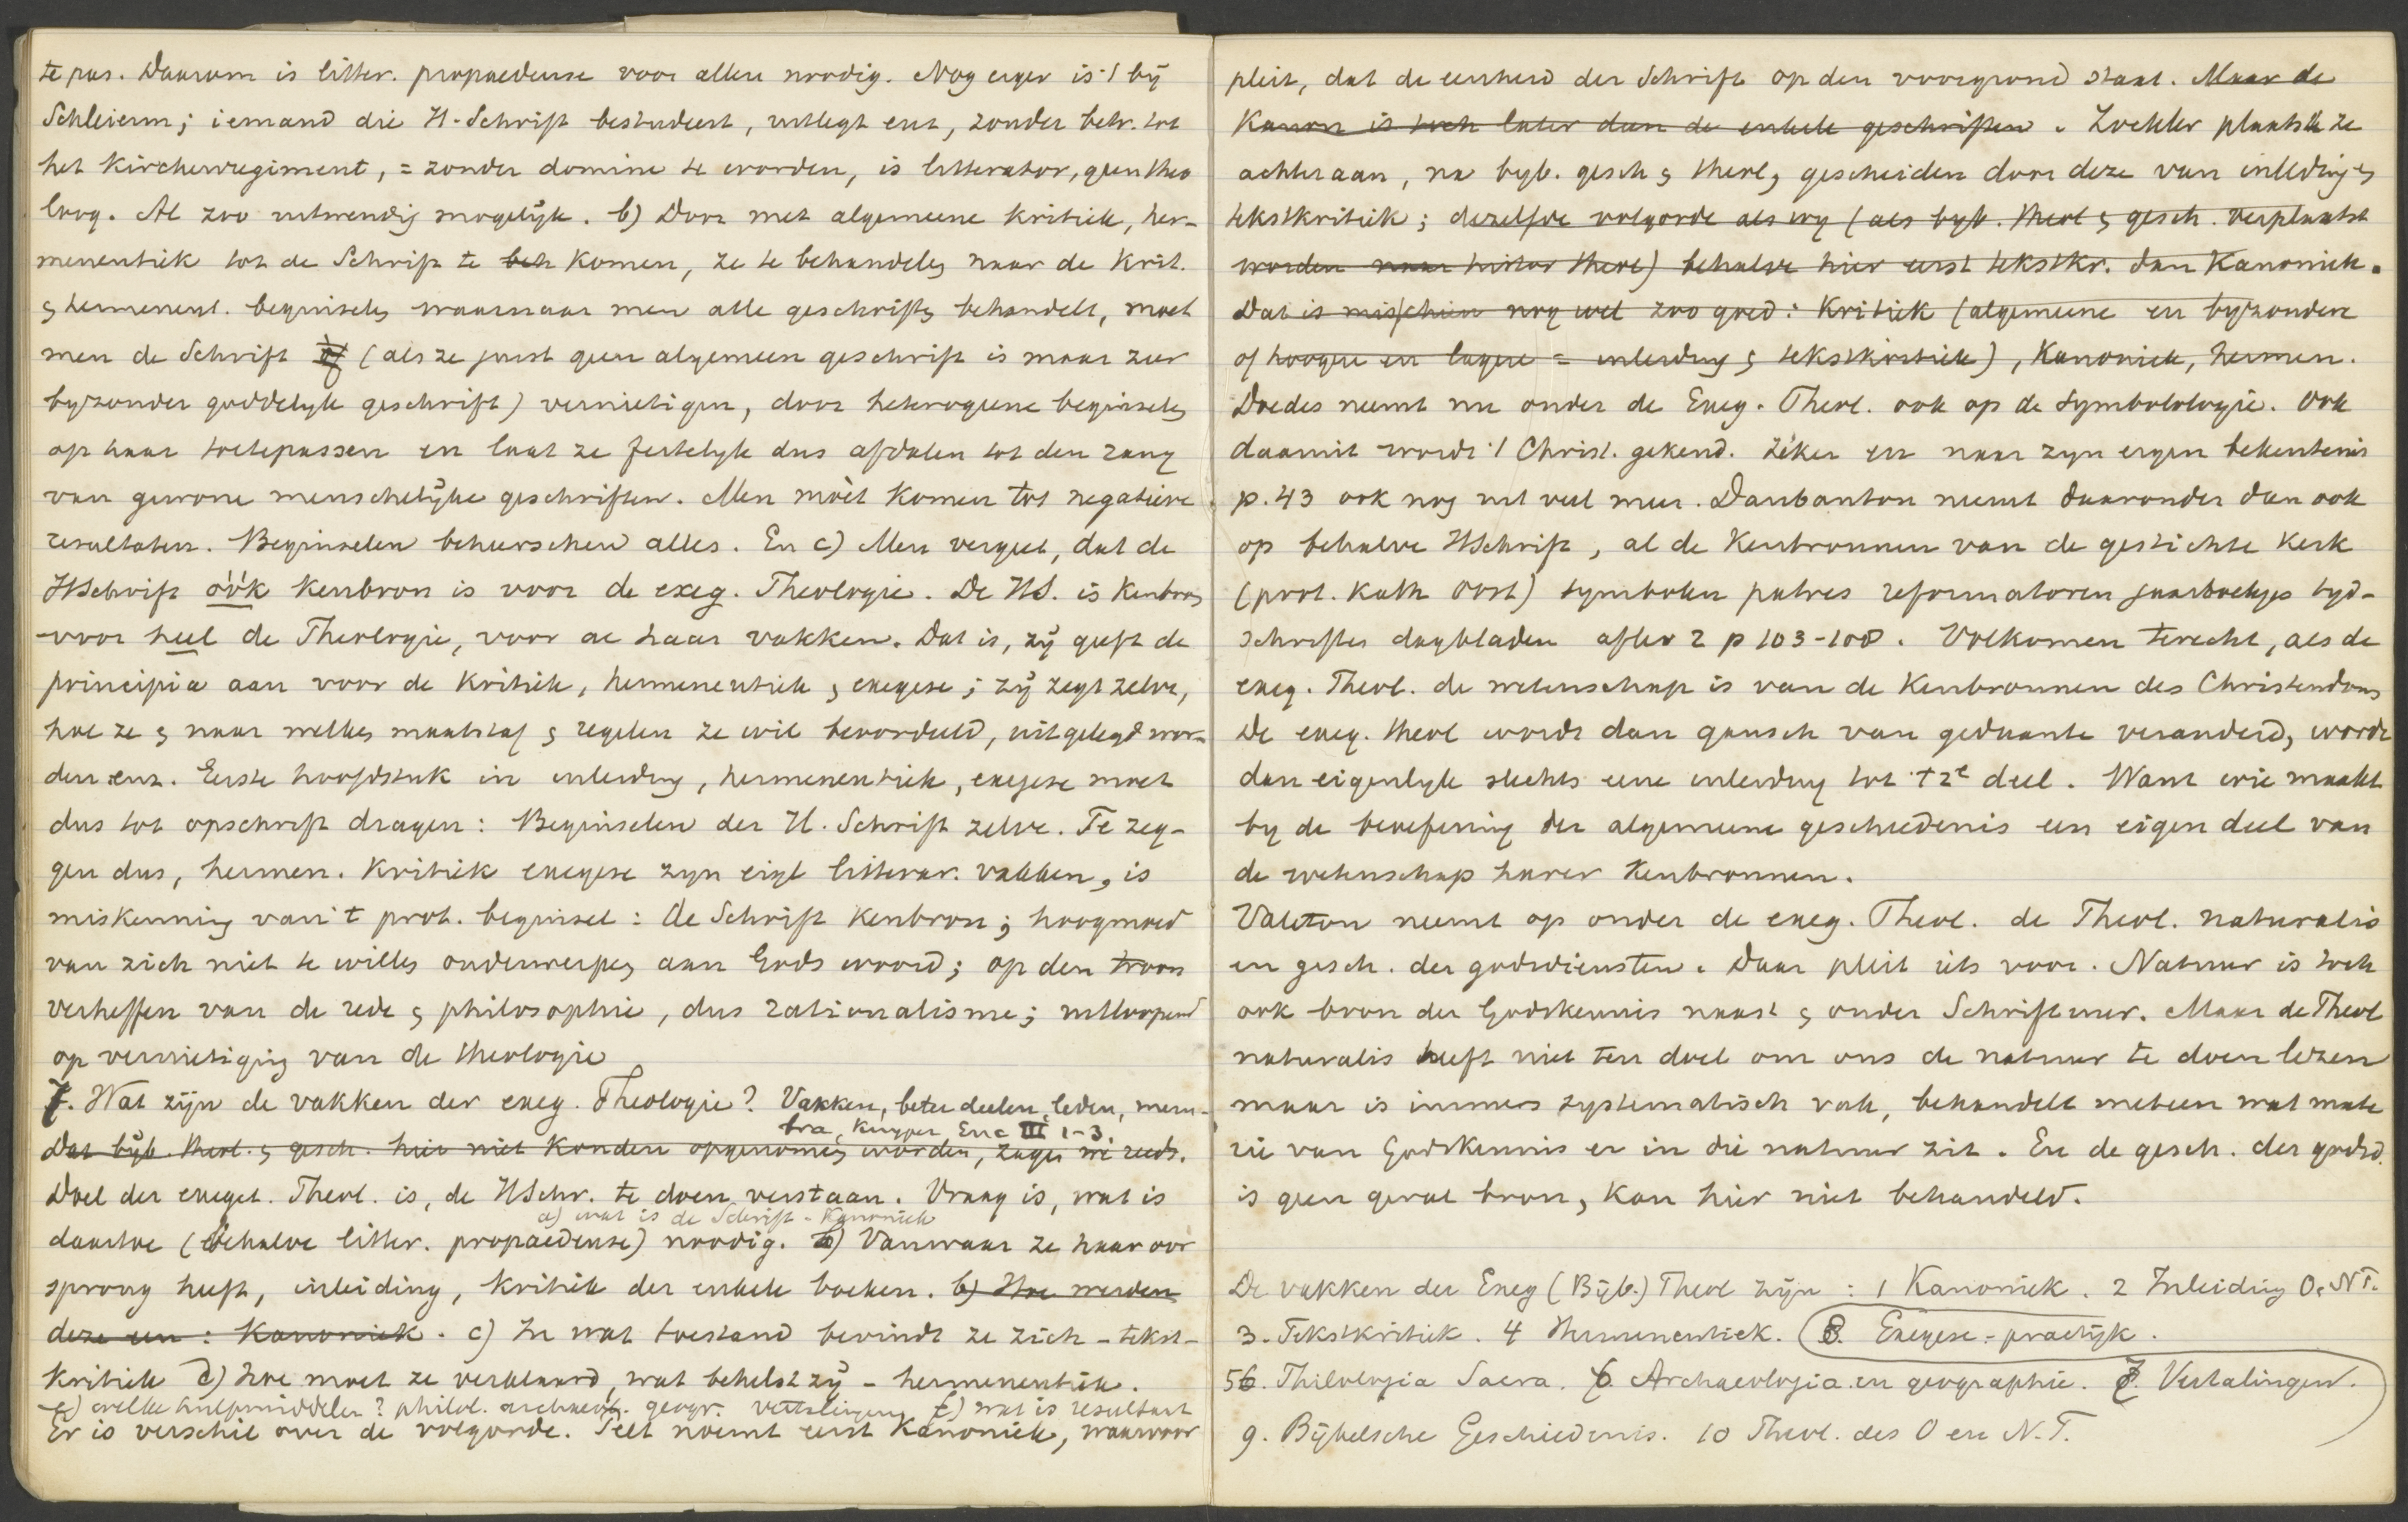 te pas. Daarom is litter. propaedeuse voor allen noodig. Nog erger is 't bij
Schleierm; iemand die H-Schrift bestudeert, uitlegt enz, zonder betr. tot
het Kirchenregiment, = zonder domine te worden, is litterator, geen theo
loog. Al zoo uitwendig mogelijk. b) Door met algemeene Kritiek, her-
meneutiek tot de Schrift te beh komen, ze te behandelen naar de Krit.
& hermeneut. beginselen waarnaar men alle geschriften behandelt, moet
men de Schrift óf (als ze juist geen algemeen geschrift is maar zeer
byzonder goddelyk geschrift) vernietigen, door heterogene beginselen
op haar toetepassen en laat ze feitelyk dus afdalen tot den rang
van gewone menschelijke geschriften. Men moèt komen tot negatieve
resultaten. Beginselen beheerschen alles. En c) Men vergeet, dat de
HSchrift óók Kenbron is voor de exeg. Theologie. De HS. is Kenbron
voor heel de Theologie, voor al haar vakken. Dat is, zij geeft de
principia aan voor de Kritiek, hermeneutiek & exegese; zij zegt zelve,
hoe ze & naar welken maatstaf & regelen ze wil beoordeeld, uitgelegd wor-
den enz. Eerste hoofdstuk in inleiding, hermeneutiek, exegese moet
dus tot opschrift dragen: Beginselen der H. Schrift zelve. Te zeg-
gen dus, hermen. Kritiek exegese zyn eigl litterar. vakken, is
miskenning van 't prot. beginsel: de Schrift Kenbron; hoogmoed
van zich niet te willen onderwerpen aan Gods woord; op den troon
verheffen van de rede & philosophie, dus rationalisme; uitloopend
op vernietiging van de theologie
7. Wat zijn de vakken der exeg. Theologie? Vakken, beter deelen, leden, mem-
bra, Kuyper Enc III 1-3.
Dat bijb. theol. & gesch. hier niet konden opgenomen worden, zagen we reeds.
Doel der exeget. Theol. is, de HSchr. te doen verstaan. Vraag is, wat is
a) wat is de Schrift - Kanoniek
daartoe (behalve litter. propaedeuse) noodig. b) Vanwaar ze haar oor
sprong heeft, inleiding, Kritiek der enkele boeken. b) Hoe werden
deze een: Kanoniek. c) In wat toestand bevindt ze zich - tekst-
Kritiek d) hoe moet ze verklaard, wat behelst zij - hermeneutiek.
e) welke hulpmiddelen? philol. archaeol. geogr. vertalingen f) wat is resultaat
Er is verschil over de volgorde. Pelt noemt eerst Kanoniek, waarvoor
pleit, dat de eenheid der Schrift op den voorgrond staat. Maar de
Kanon is toch later dan de enkele geschriften. Zöckler plaatst ze
achteraan, na byb. gesch & theol, gescheiden door deze van inleiding &
tekstkritiek; dezelfde volgorde als wy (als byb. theol & gesch. verplaatst
worden naar histor theol) behalve hier eerst tekstkr. dan Kanoniek.
Dat is misschien nog wel zoo goed: Kritiek (algemeene en byzondere
of hoogere en lagere = inleiding & tekstkritiek), Kanoniek, hermen.
Doedes neemt nu onder de Exeg. Theol. ook op de Symbolologie. Ook
daaruit wordt 't Christ. gekend. Zéker en naar zyn eigen bekentenis
p. 43 ook nog uit veel meer. Daubanton neemt daaronder dan ook
op behalve HSchrift, al de Kenbronnen van de gestichte Kerk
(prot. Kath Oost) symbolen patres reformatoren jaarboekjes tyd-
schriften dagbladen afler 2 p 103-108. Volkomen terecht, als de
exeg. Theol. de wetenschap is van de Kenbronnen des Christendoms
De exeg. theol wordt dan gansch van gedaante veranderd, wordt
dan eigenlyk slechts eene inleiding tot 't 2e deel. Want wie maakt
by de beoefening der algemeene geschiedenis een eigen deel van
de wetenschap harer Kenbronnen.
Valeton neemt op onder de exeg. Theol. de Theol. naturalis
en gesch. der godsdiensten. Daar pleit iets voor. Natuur is toch
ook bron der Godskennis naast & onder Schrift neer. Maar de Theol
naturalis heeft niet ten doel om ons de natuur te doen lezen
maar is immers systematisch vak, behandelt meteen wat mate
rie van Godskennis er in die natuur zit. En de gesch. der godsd.
is geen geval bron, kan hier niet behandeld.
De vakken der Exeg (Bijb.) Theol zijn: 1 Kanoniek. 2 Inleiding O. N T.
3. Tekstkritiek. 4 Hermeneutiek. 8. Exegese = practijk.
5. Philologia Sacra. 6. Archaeologia en geographie. 7. Vertalingen.
9. Bijbelsche Geschiedenis. 10 Theol. des O en N. T.